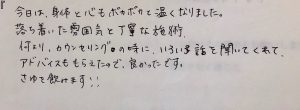 今日は、身体と心もポカポカと温くなりました。
落ち着いた雰囲気と丁寧な施術、
何より、カウンセリングの時に、いろいろ話を聞いてくれて、
アドバイスももらえたので、良かったです。
さゆも飲めます!!